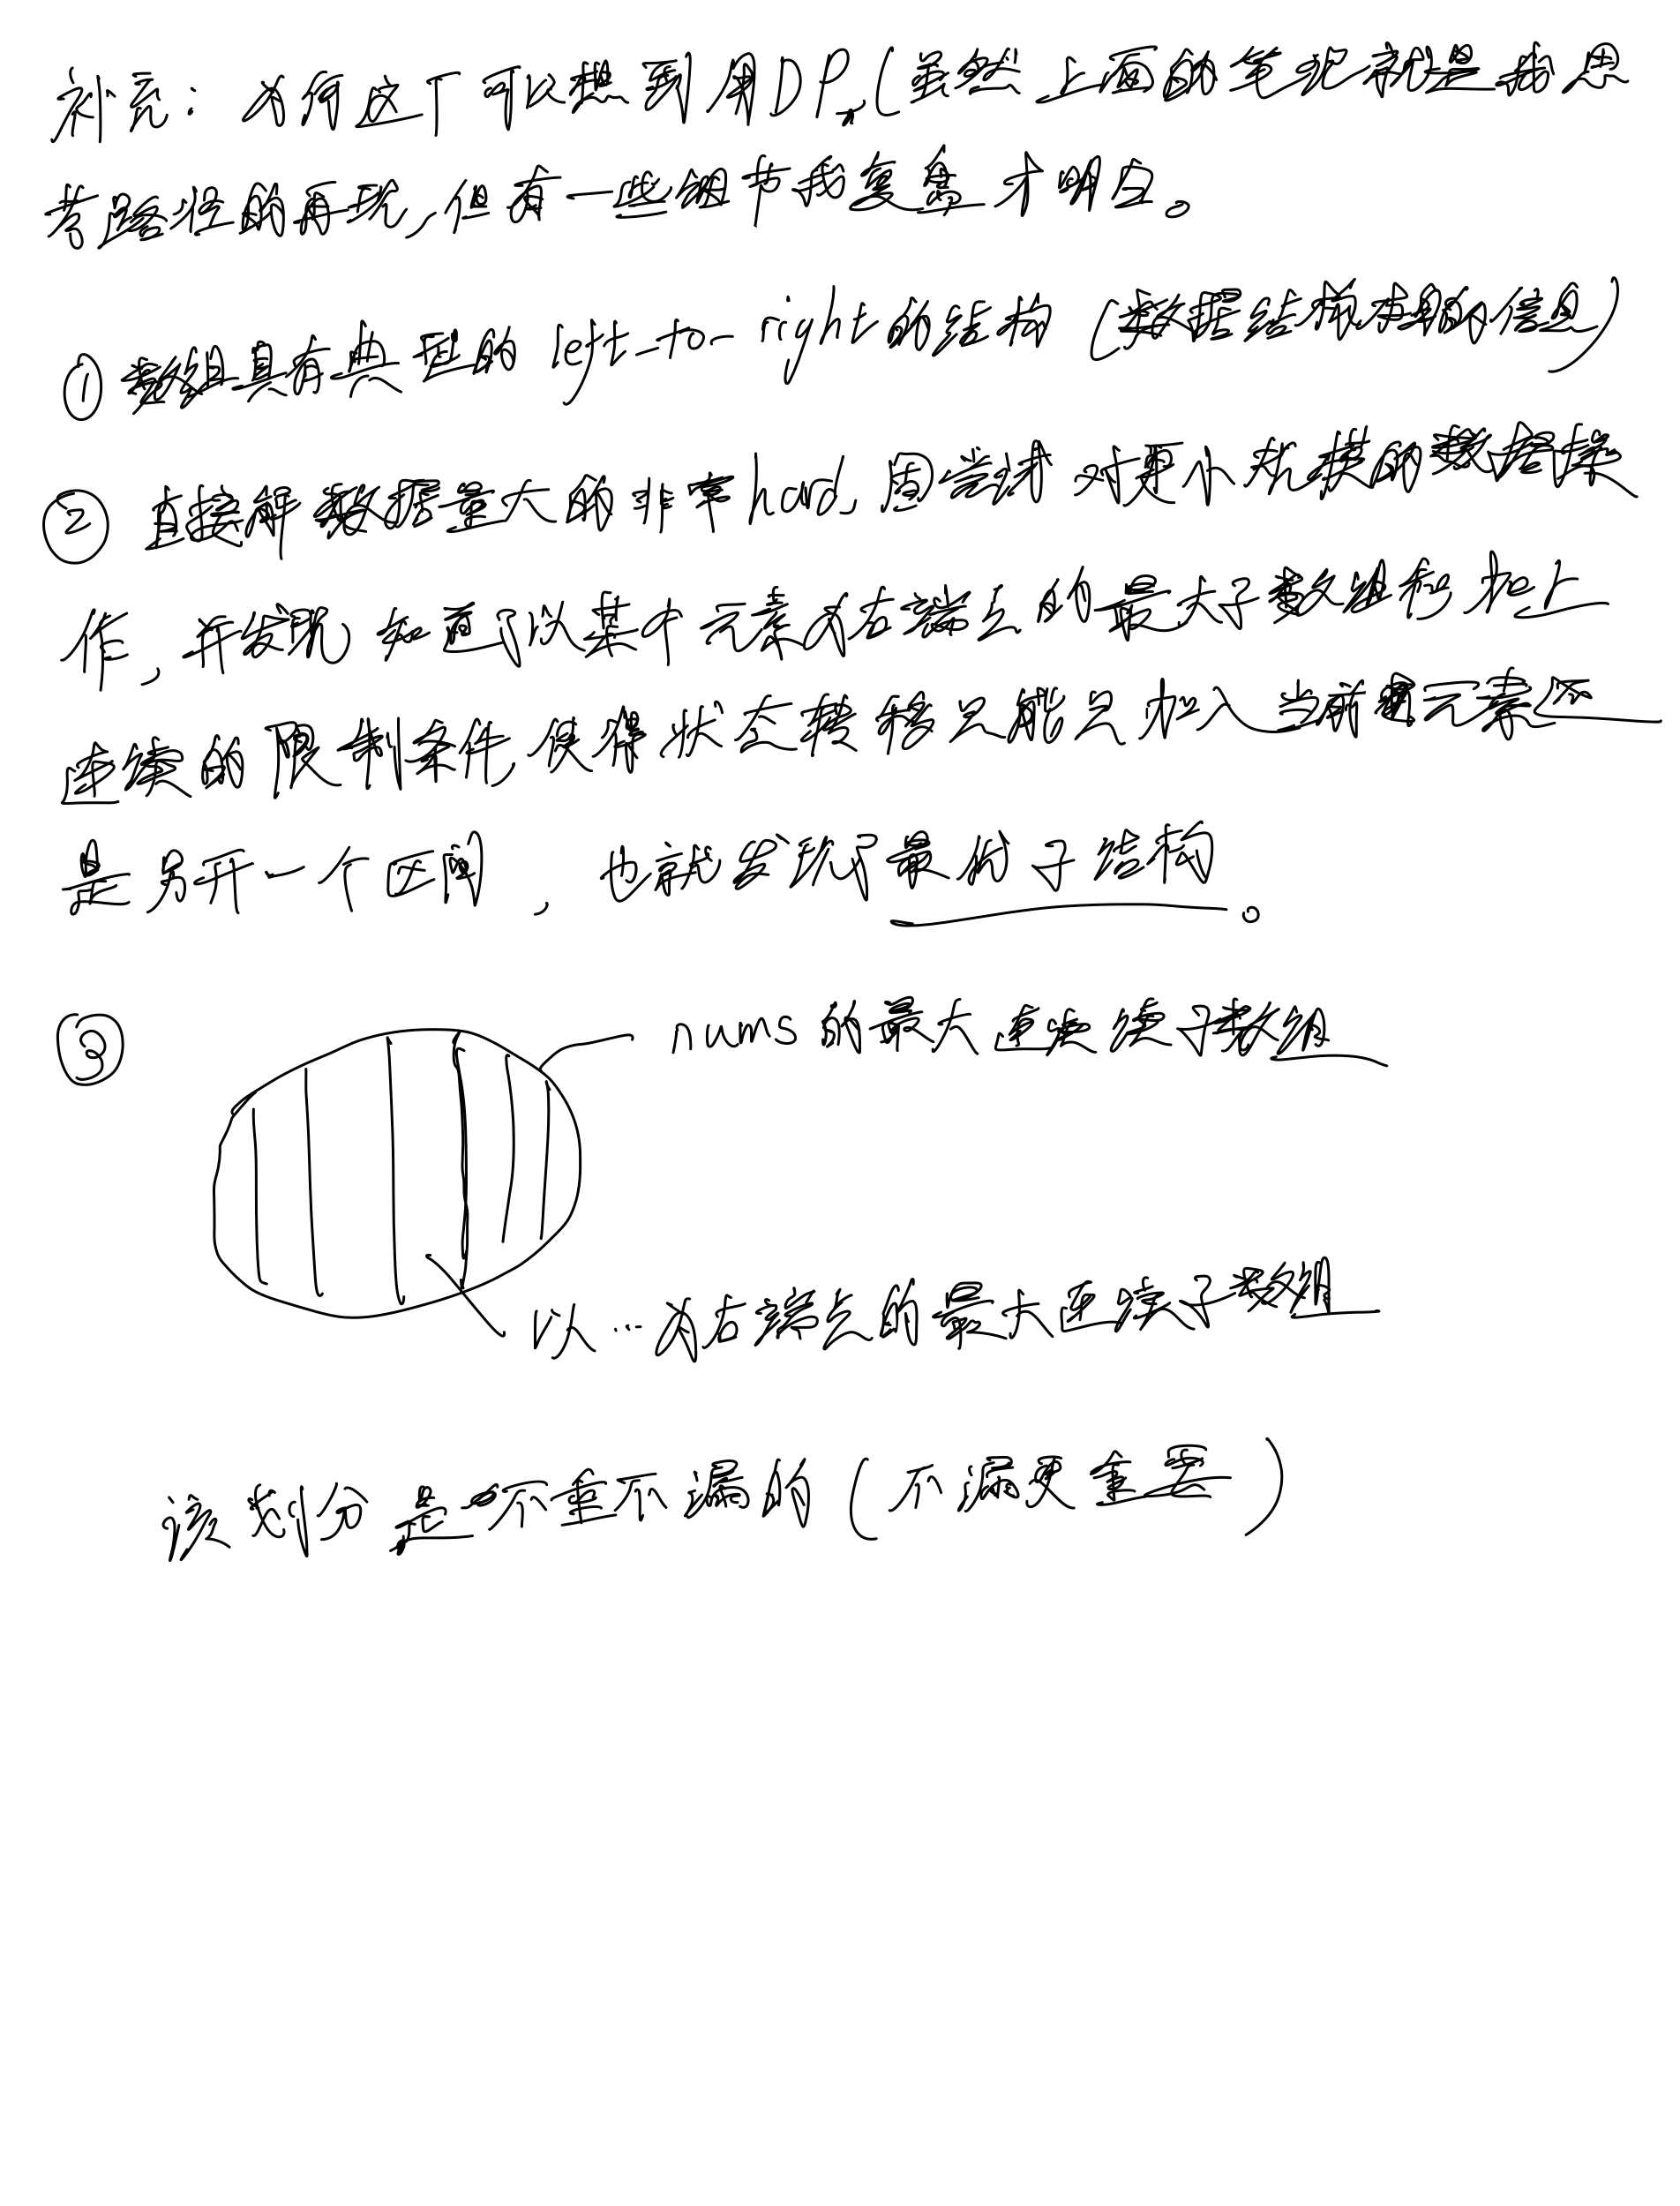 补充：为何这个可以想到用DP，(虽然上面的笔记就是我思
考路径的再现，但有一些细节我复盘才明白。
① 数组具有典型的 left-to-right的结构 (数据结构本身的信息)
② 直接解数据量大的非常hard，因尝试对更小规模的数据操
作，并发现知道了以某个元素为右端点的最大子数组和加上
连续的限制条件，使得状态转移只能是加入当前元素还
是另开一个区间，也就发现了最优子结构。
③ nums的最大连续子数组
以…为右端点的最大连续子数组
该划分是不重不漏的(不漏更重要)